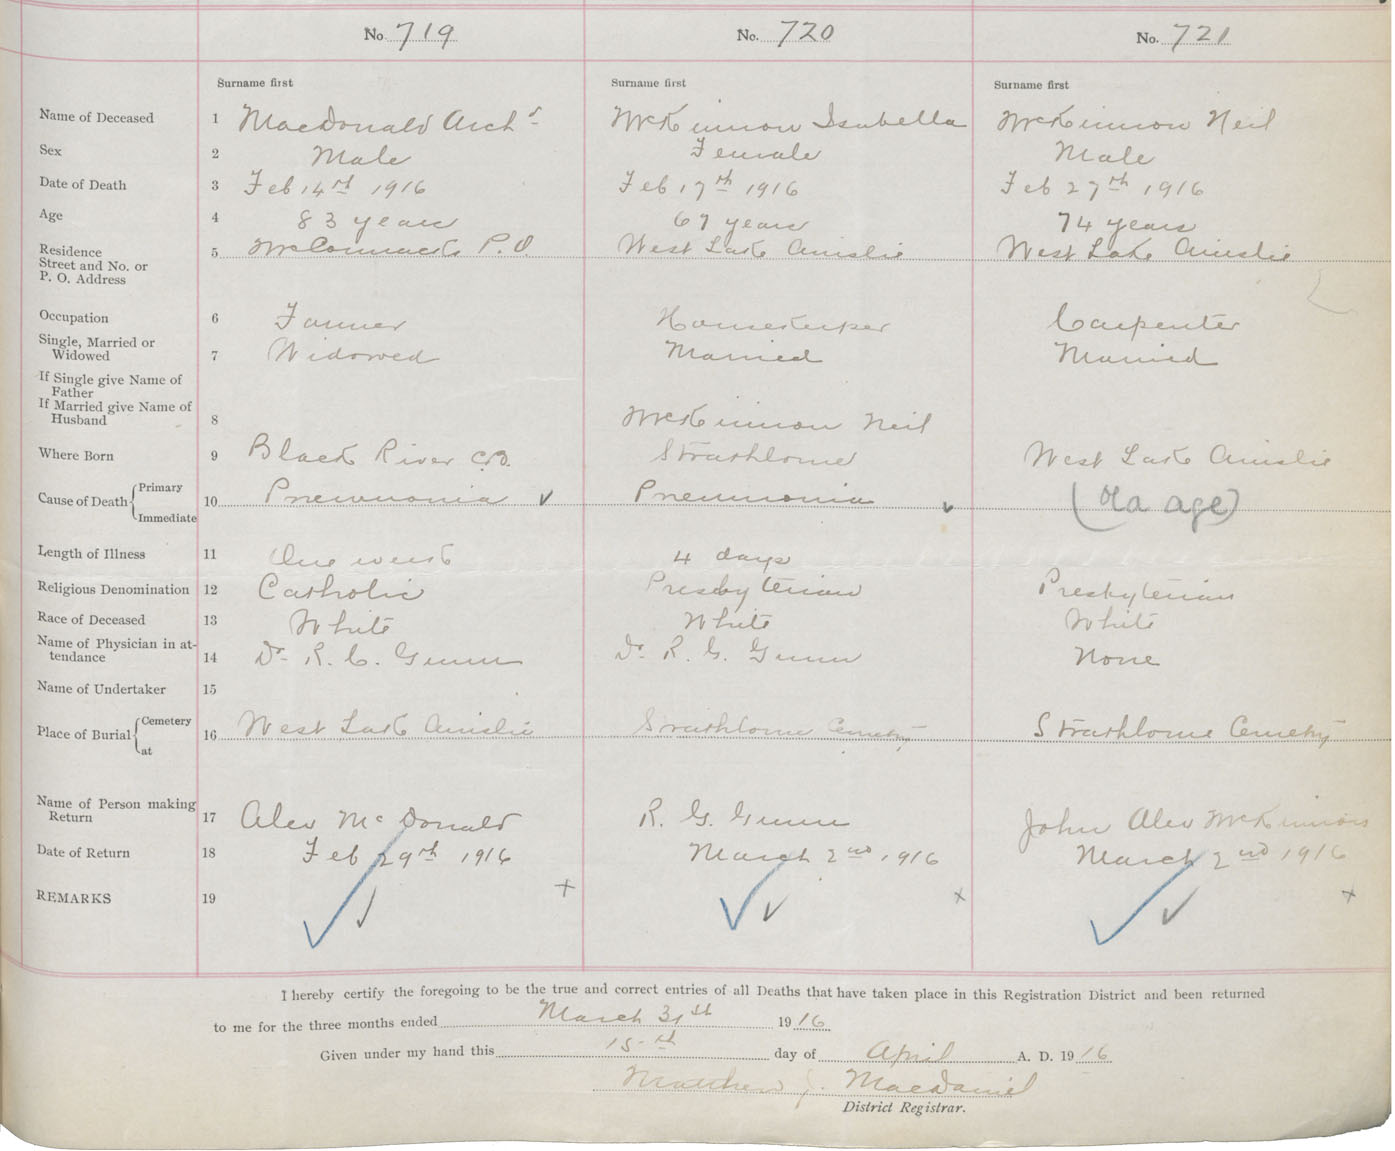 No. 719 No. 720 No. 721
Surname first Surname first Surname first
Name of Deceased 1 MacDonald Archd McKinnon Isabella McKinnon Neil
Sex 2 Male Female Male
Date of Death 3 Feb 14th 1916 Feb 17th 1916 Feb 27th 1916
Age 4 83 years 67 years 74 years
Residence
Street and No. or 5 McCormack P.O. West Lake Ainslie West Lake Ainslie
P. O. Address
Occupation 6 Farmer Housekeeper Carpenter
Single, Married or
Widowed 7 Widowed Married Married
If Single give Name of
Father
If Married give Name of
Husband 8 McKinnon Neil
Where Born 9 Black River Strathlorne West Lake Ainslie
Cause of Death { Primary
10 Pneumonia Pneumonia (Old age)
Immediate
Length of Illness 11 One week 4 days
Religious Denomination 12 Catholic Presbyterian Presbyterian
Race of Deceased 13 White White White
Name of Physician in at-
tendance 14 Dr. R. G. Gunn Dr. R. G. Gunn None
Name of Undertaker 15
Place of Burial { Cemetery
16 West Lake Ainslie Strathlorne Cemetry Strathlorne Cemetry
at
Name of Person making
Return 17 Alex McDonald R. G. Gunn John Alex McKinnon
Date of Return 18 Feb 29th 1916 March 2nd, 1916 March 2nd 1916
REMARKS 19
I hereby certify the foregoing to be the true and correct entries of all Deaths that have taken place in this Registration District and been returned
to me for the three months ended March 31st 1916
Given under my hand this 15th day of April A. D. 1916
Matthew J. Macdaniel
District Registrar.